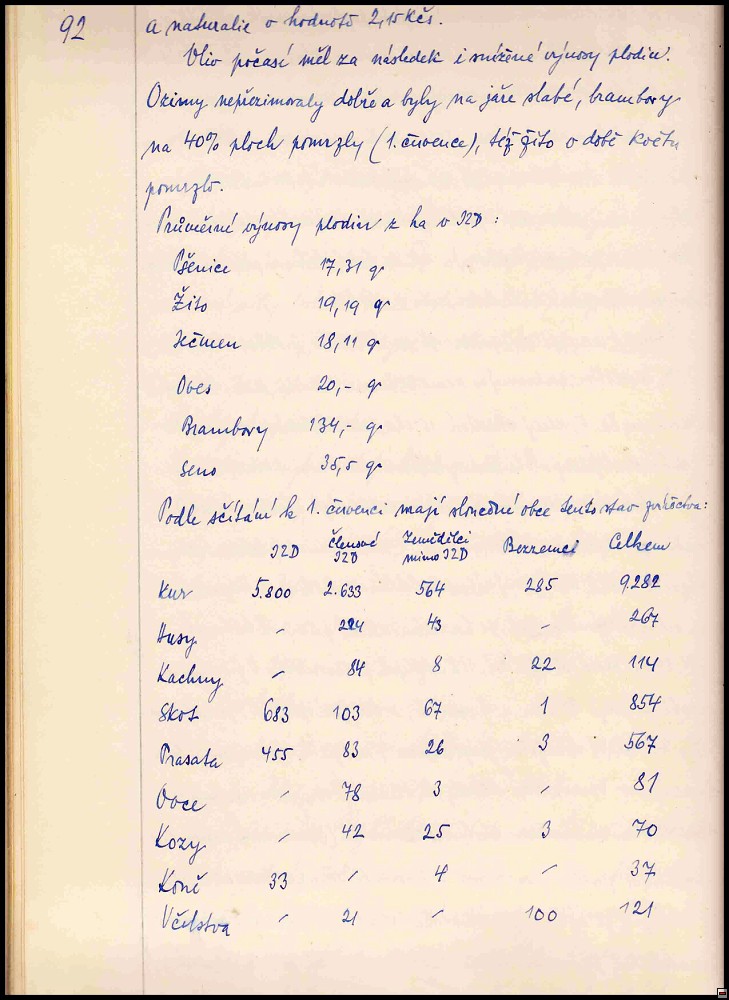 92
a naturalie v hodnotě 2,15 Kčs.
Vliv počasí měl za následek i snížené výnosy plodin.
Ozimy nepřezimovaly dobře a byly na jaře slabé, brambory
na 40% ploch pomrzly (1. července), též žito v době květu
pomrzlo.
Průměrné výnosy plodin z ha v JZD :
Pšenice 17,31 q
Žito 19,19 q
Ječmen 18,11 q
Oves 20,- q
Brambory 134,- q
Seno 35,5 q
Podle sčítání k 1. červenci mají sloučené obce tento stav zvířectva:
JZD Členové JZD Zemědělci mimo JZD Bezzemci Celkem
Kur 5.800 2.633 564 285 9.282
Husy - 224 43 - 267
Kachny - 84 8 22 114
Skot 683 103 67 1 854
Prasata 455 83 26 3 567
Ovce - 78 3 - 81
Kozy - 42 25 3 70
Koně 33 - 4 - 37
Včelstva - 21 - 100 121